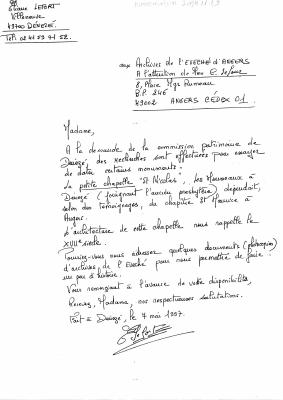 LEFORT
Villeneuve
49700 DENEZE
Tel: 02 41 59 21 52.
aux Archives de l'EVECHÉ d'ANGERS
A l'attention de
8, Place Mgr Rumeau
B.P. 246
49002 ANGERS CÉDEX 01
Madame,
A la demande de la commission patrimoine de
Denezé, des recherches sont effectuées pour essayer
de dater certains monuments.
La petite chapelle "St Nicolas", les Mousseaux à
Denezé (joignant l'ancien presbytère), dépendait,
selon des témoignages, du chapitre St Maurice à
Angers.
L'architecture de cette chapelle nous rappelle le
siècle.
Pourriez-vous nous adresser quelques documents (photocopies)
d'archives, de l'Evéché pour nous permettre de faire
un peu d'histoire.
Vous remerciant à l'avance de votre disponibilité,
Recevez, Madame, nos respectueuses salutations.
Fait à Denezé, le 7 mai 1997.